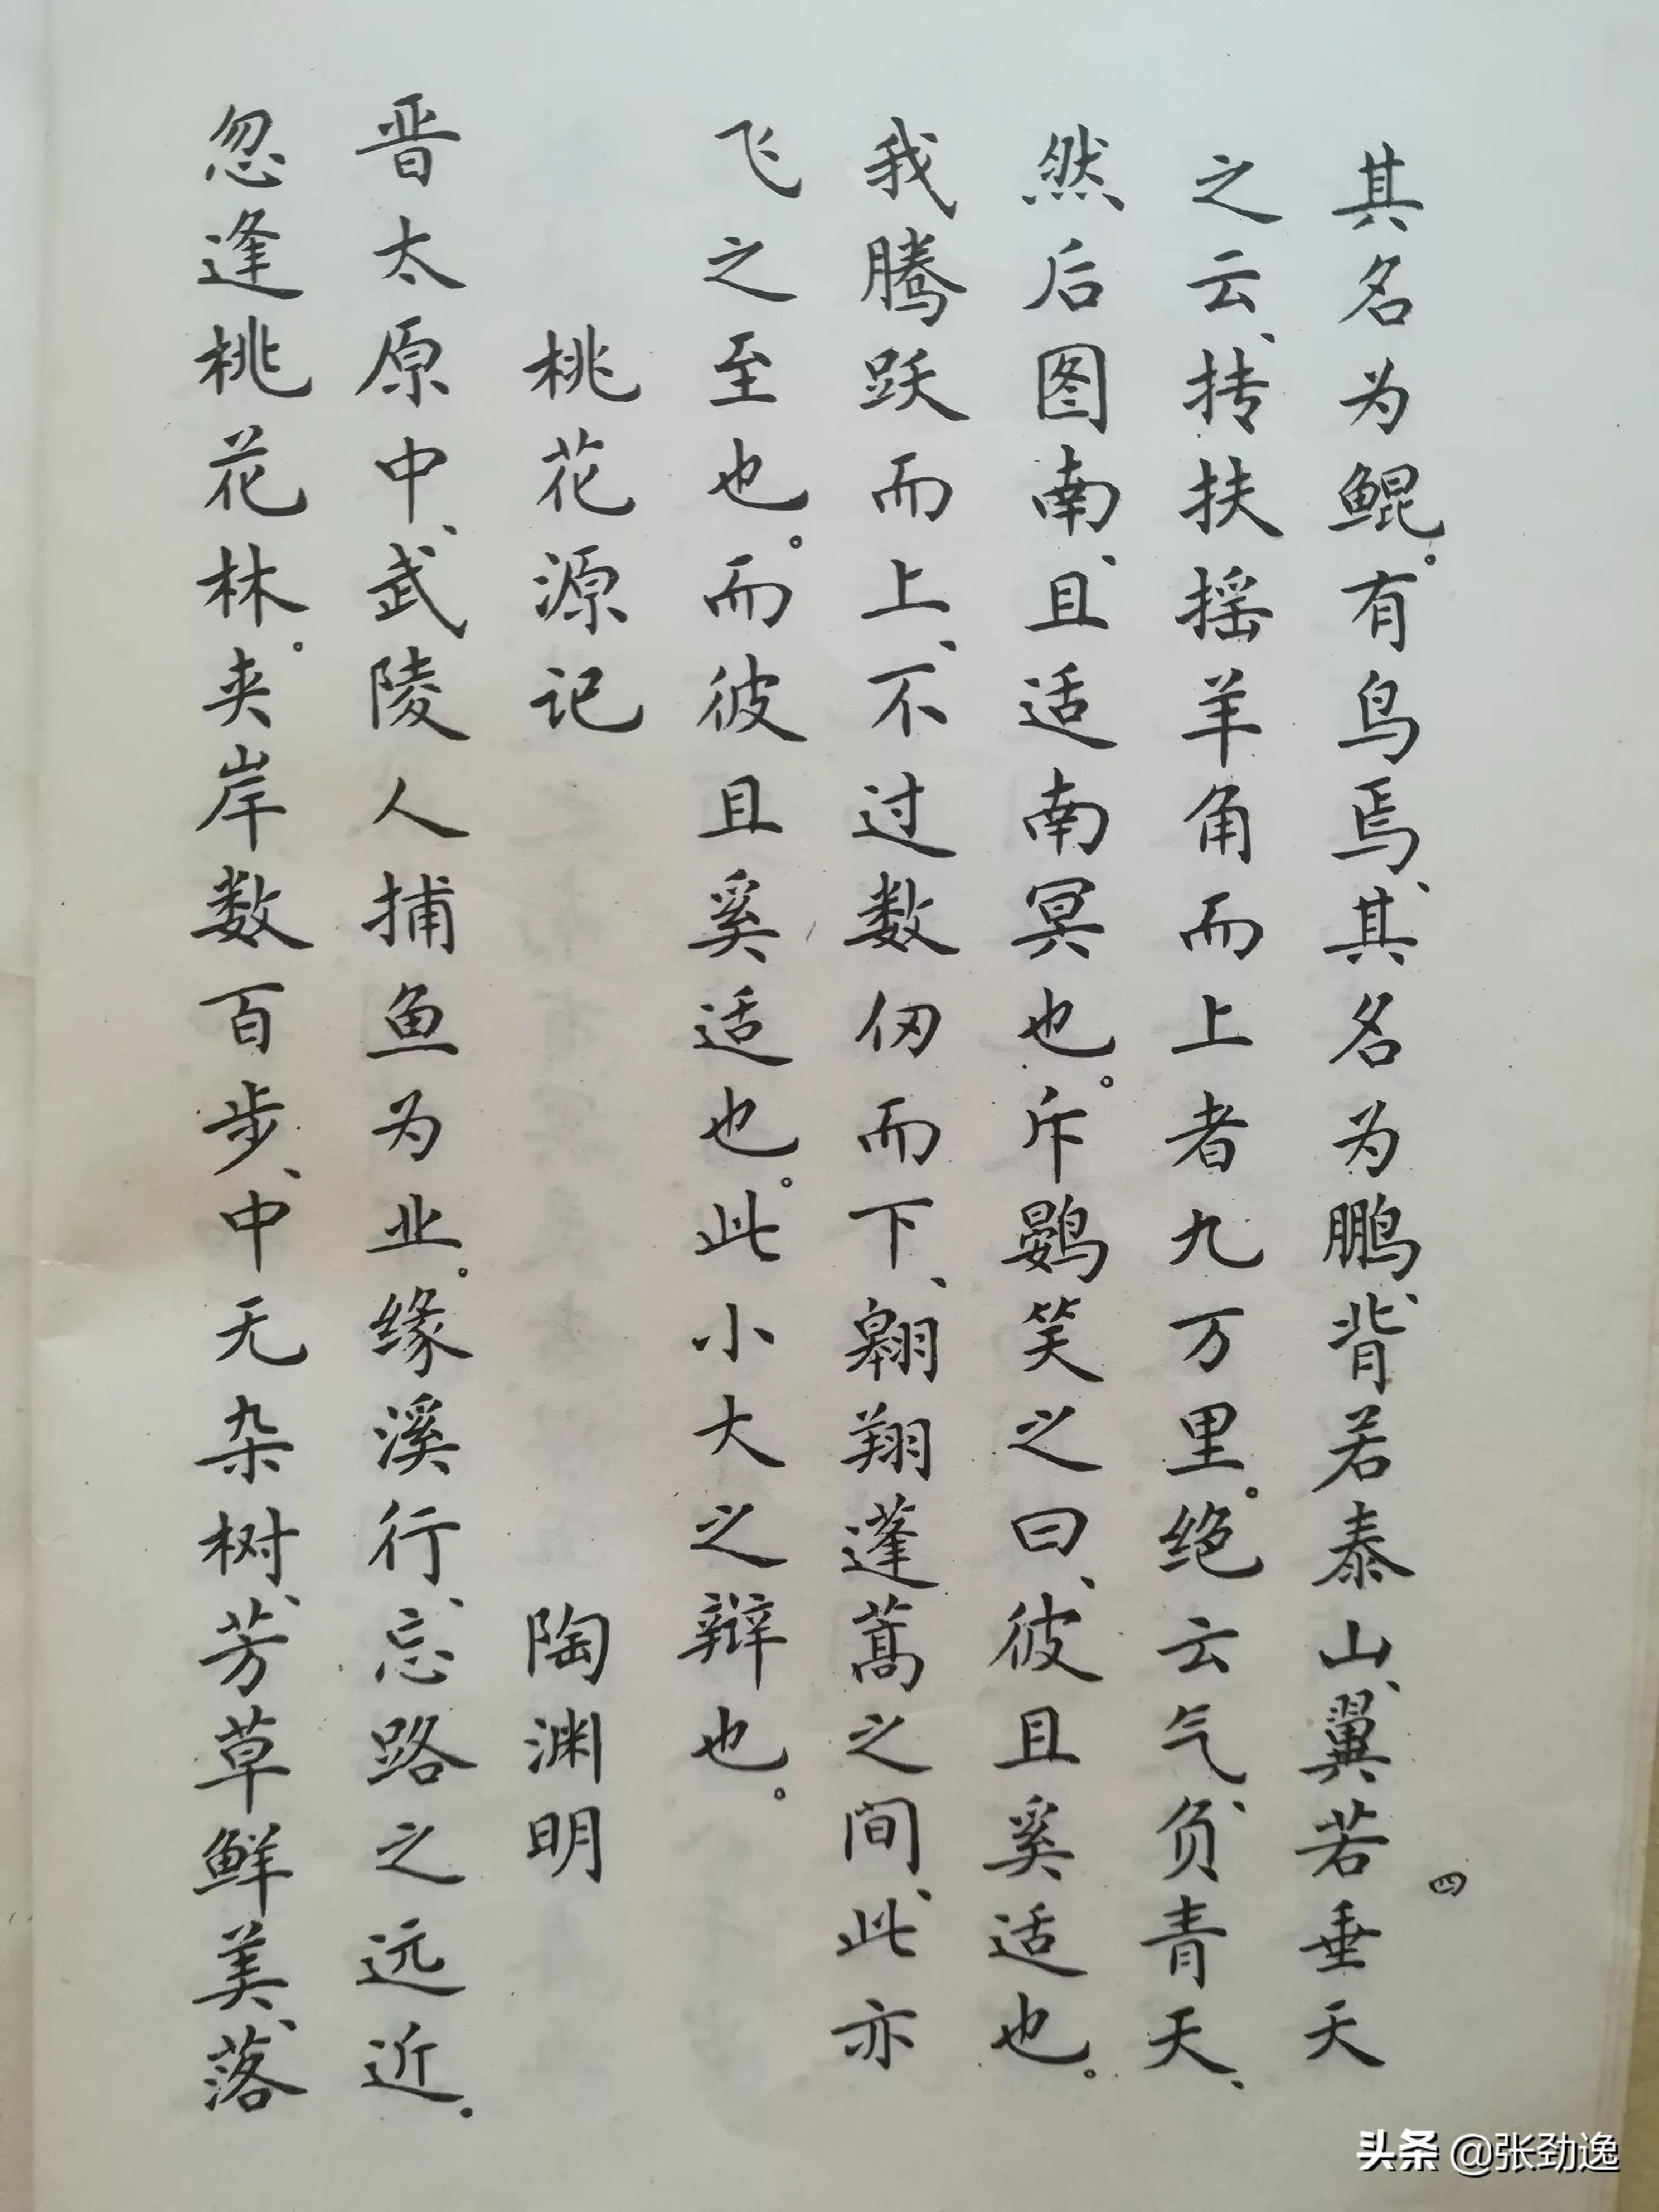 其名为鲲。有鸟焉、其名为鹏、背若泰山、翼若垂天
之云、抟扶摇羊角而上者九万里。绝云气、负青天、
然后图南、且适南冥也。斥鷃笑之曰、彼且奚适也。
我腾跃而上、不过数仞而下、翱翔蓬蒿之间、此亦
飞之至也。而彼且奚适也。此小大之辩也。
桃花源记 陶渊明
晋太原中、武陵人捕鱼为业。缘溪行、忘路之远近。
忽逢桃花林。夹岸数百步、中无杂树、芳草鲜美、落
四
头条 @张劲逸